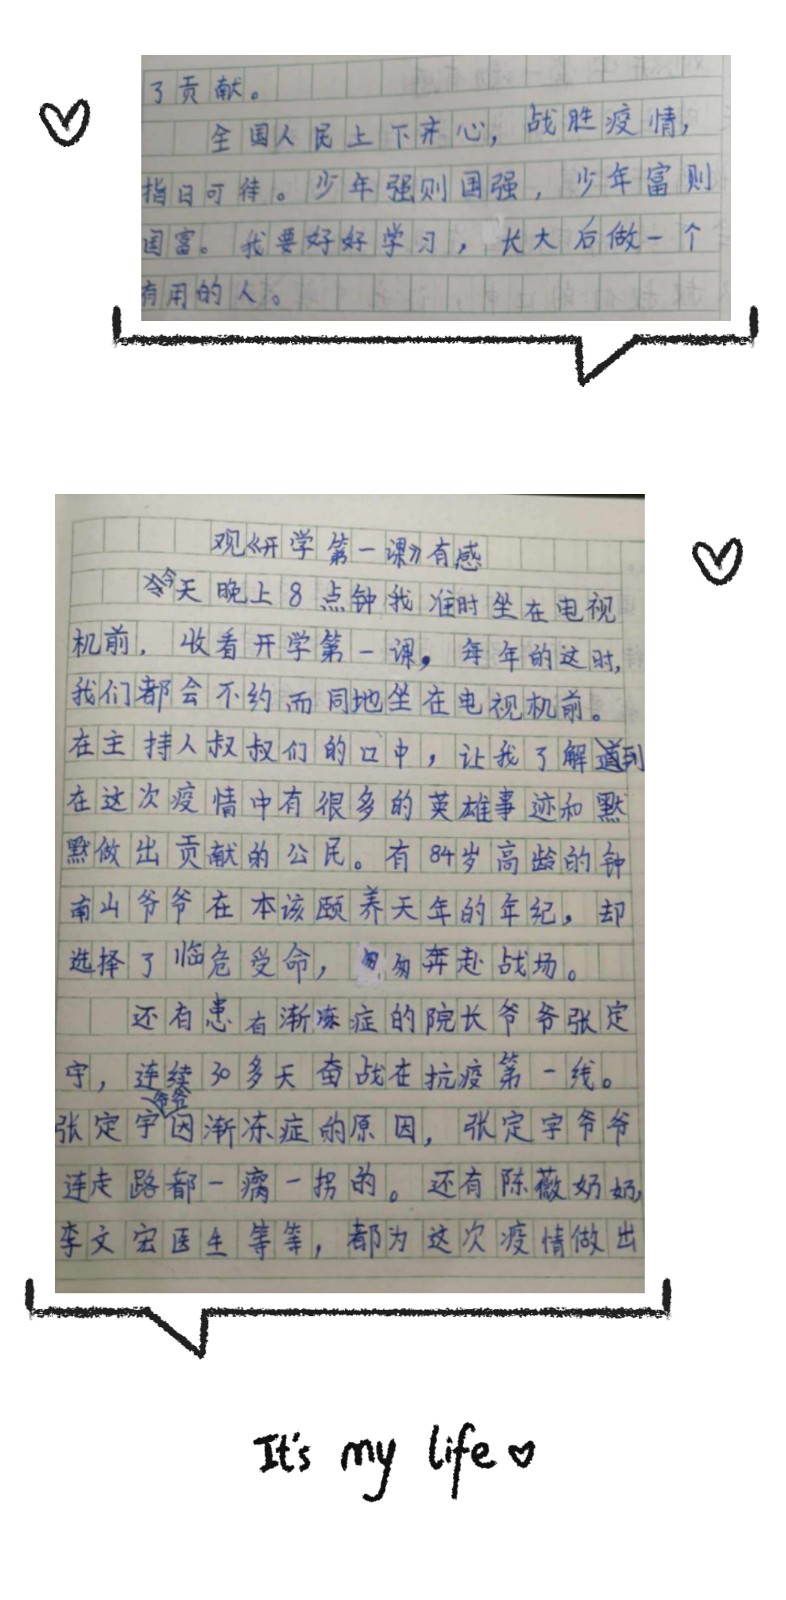 了贡献。
全国人民上下齐心，战胜疫情，
指日可待。少年强则国强，少年富则
国富。我要好好学习，长大后做一个
有用的人。
观《开学第一课》有感
今天晚上8点钟我准时坐在电视
机前，收看开学第一课，每年的这时，
我们都会不约而同地坐在电视机前。
在主持人叔叔们的口中，让我了解到
在这次疫情中有很多的英雄事迹和默
默做出贡献的公民。有84岁高龄的钟
南山爷爷在本该颐养天年的年纪，却
选择了临危受命，匆匆奔赴战场。
还有患有渐冻症的院长爷爷张定
宇，连续30多天奋战在抗疫第一线。
张定宇爷爷因渐冻症的原因，张定宇爷爷
连走路都一瘸一拐的。还有陈薇奶奶，
李文宏医生等等，都为这次疫情做出
It's my life